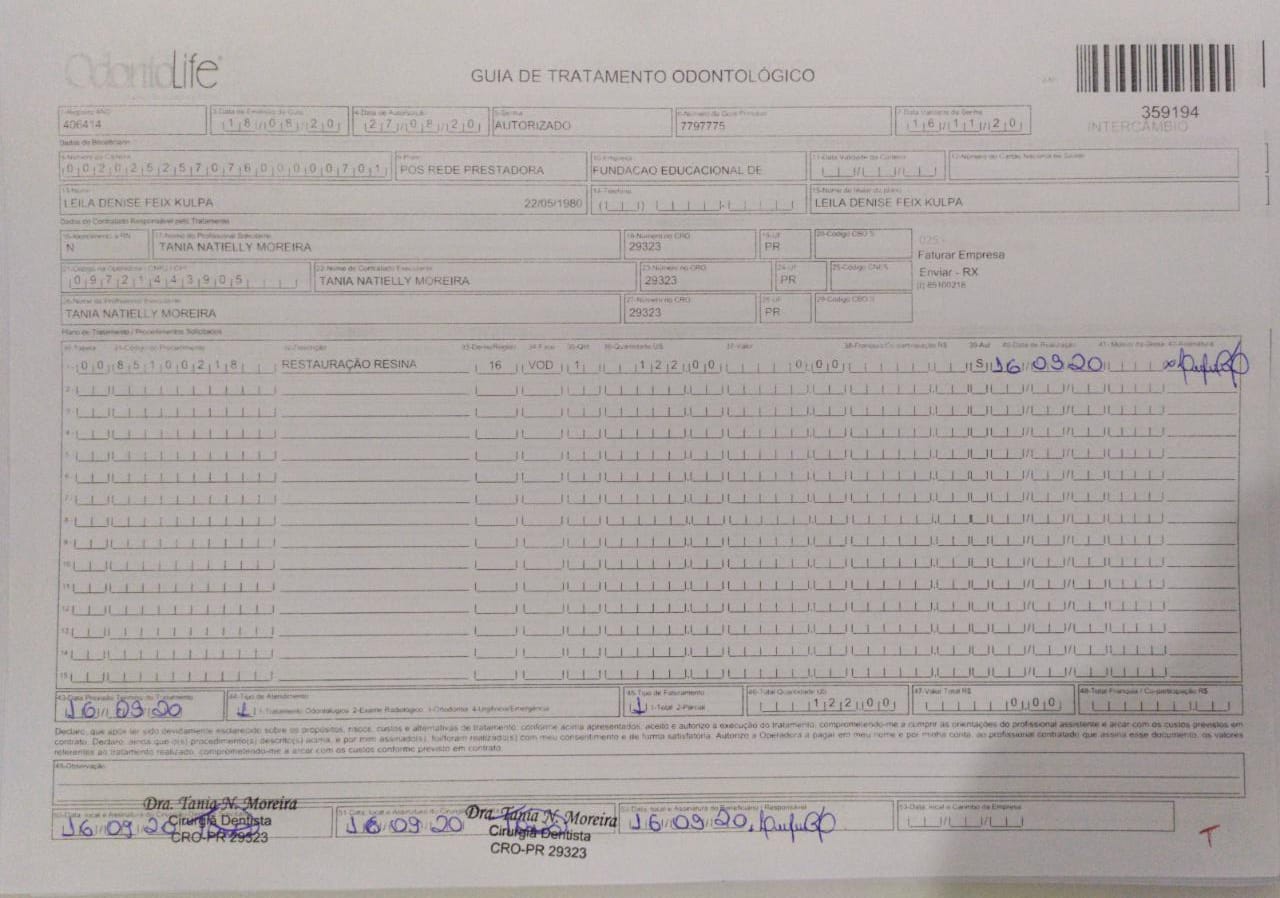 OdontoLife
GUIA DE TRATAMENTO ODONTOLÓGICO
359194
INTERCÂMBIO
1-Registro ANS
406414
3-Data de Emissão da Guia
18/08/20
4-Data de Autorização
27/08/20
5-Senha
AUTORIZADO
6-Número da Guia Principal
7797775
7-Data Validade da Senha
16/11/20
Dados do Beneficiário
8-Número da Carteira
00202525707600000701
9-Plano
POS REDE PRESTADORA
10-Empresa
FUNDACAO EDUCACIONAL DE
11-Data Validade da Carteira
12-Número do Cartão Nacional de Saúde
13-Nome
LEILA DENISE FEIX KULPA 22/05/1980
14-Telefone
15-Nome do titular do plano
LEILA DENISE FEIX KULPA
Dados do Contratado Responsável pelo Tratamento
16-Atendimento a RN
N
17-Nome do Profissional Solicitante
TANIA NATIELLY MOREIRA
18-Número no CRO
29323
19-UF
PR
20-Código CBO S
025 -
Faturar Empresa
Enviar - RX
(I) 85100218
21-Código na Operadora / CNPJ / CPF
09721443905
22-Nome do Contratado Executante
TANIA NATIELLY MOREIRA
23-Número no CRO
29323
24-UF
PR
25-Código CNES
26-Nome do Profissional Executante
TANIA NATIELLY MOREIRA
27-Número no CRO
29323
28-UF
PR
29-Código CBO S
Plano de Tratamento / Procedimentos Solicitados
30-Tabela 31-Código do Procedimento 32-Descrição 33-Dente/Região 34-Face 35-Qtd 36-Quantidade US 37-Valor 38-Franquia/Co-participação R$ 39-Aut 40-Data de Realização 41-Motivo da Glosa 42-Assinatura
1- 00 85100218 RESTAURAÇÃO RESINA 16 VOD 1 122,00 0,00 S 16/09/20
2-
3-
4-
5-
6-
7-
8-
9-
10-
11-
12-
13-
14-
15-
43-Data Prevista Término do Tratamento
16/09/20
44-Tipo de Atendimento
1 1-Tratamento Odontológico 2-Exame Radiológico 3-Ortodontia 4-Urgência/Emergência
45-Tipo de Faturamento
1 1-Total 2-Parcial
46-Total Quantidade US
122,00
47-Valor Total R$
0,00
48-Total Franquia / Co-participação R$
Declaro, que após ter sido devidamente esclarecido sobre os propósitos, riscos, custos e alternativas de tratamento, conforme acima apresentados, aceito e autorizo a execução do tratamento, comprometendo-me a cumprir as orientações do profissional assistente e arcar com os custos previstos em
contrato. Declaro, ainda que o(s) procedimento(s) descrito(s) acima, e por mim assinado(s), foi/foram realizado(s) com meu consentimento e de forma satisfatória. Autorizo a Operadora a pagar em meu nome e por minha conta, ao profissional contratado que assina esse documento, os valores
referentes ao tratamento realizado, comprometendo-me a arcar com os custos conforme previsto em contrato.
49-Observação
50-Data, local e Assinatura do
16/09/20
Dra. Tania N. Moreira
Cirurgiã Dentista
CRO-PR 29323
51-Data, local e Assinatura do
16/09/20
Dra. Tania N. Moreira
Cirurgiã Dentista
CRO-PR 29323
52-Data, local e Assinatura do Beneficiário / Responsável
16/09/20
53-Data, local e Carimbo da Empresa
T